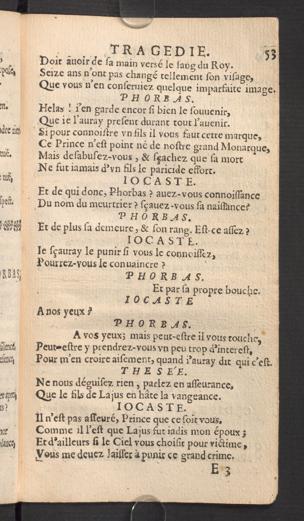 TRAGEDIE. 53
Doit auoir de sa main versé le sang du Roy.
Seize ans n'ont pas changé tellement son visage,
Que vous n'en conseruiez quelque imparfaite image.
PHORBAS.
Helas ! i'en garde encor si bien le souuenir,
Que ie l'auray present durant tout l'auenir.
Si pour connoistre vn fils il vous faut cette marque,
Ce Prince n'est point né de nostre grand Monarque,
Mais desabusez-vous, & sçachez que sa mort
Ne fut iamais d'vn fils le paricide effort.
IOCASTE.
Et de qui donc, Phorbas ? auez-vous connoissance
Du nom du meurtrier ? sçauez-vous sa naissance?
PHORBAS.
Et de plus sa demeure, & son rang. Est-ce assez ?
IOCASTE.
Ie sçauray le punir si vous le connoissez,
Pourrez-vous le conuaincre ?
PHORBAS.
Et par sa propre bouche.
IOCASTE
A nos yeux ?
PHORBAS.
A vos yeux; mais peut-estre il vous touche,
Peut-estre y prendrez-vous vn peu trop d'interest,
Pour m'en croire aisement, quand i'auray dit qui c'est.
THESÉE.
Ne nous déguisez rien, parlez en asseurance,
Que le fils de Lajus en hâte la vangeance.
IOCASTE.
Il n'est pas asseuré, Prince que ce soit vous,
Comme il l'est que Lajus fut iadis mon époux ;
Et d'ailleurs si le Ciel vous choisit pour victime,
Vous me deuez laisser à punir ce grand crime.
E 3